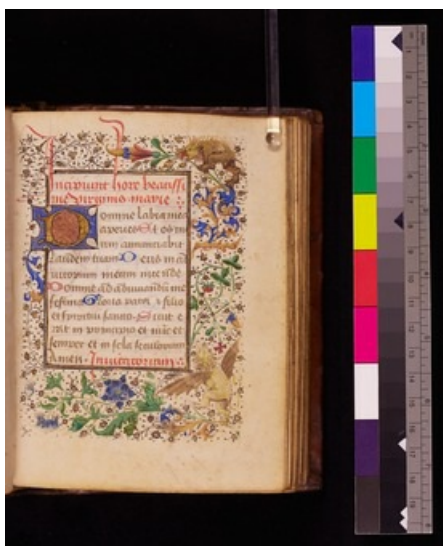 Incipiunt hore beatissi
me virginis marie
Domine labia mea
aperies Et os m
eum annunciabit
laudem tuam Deus in ad
iutorium meum intende
Domine ad adiuvandum me
festina Gloria patri et filio
et spiritui sancto Sicut e
rat in principio et nunc et
semper et in secula seculorum
Amen Invitatorium